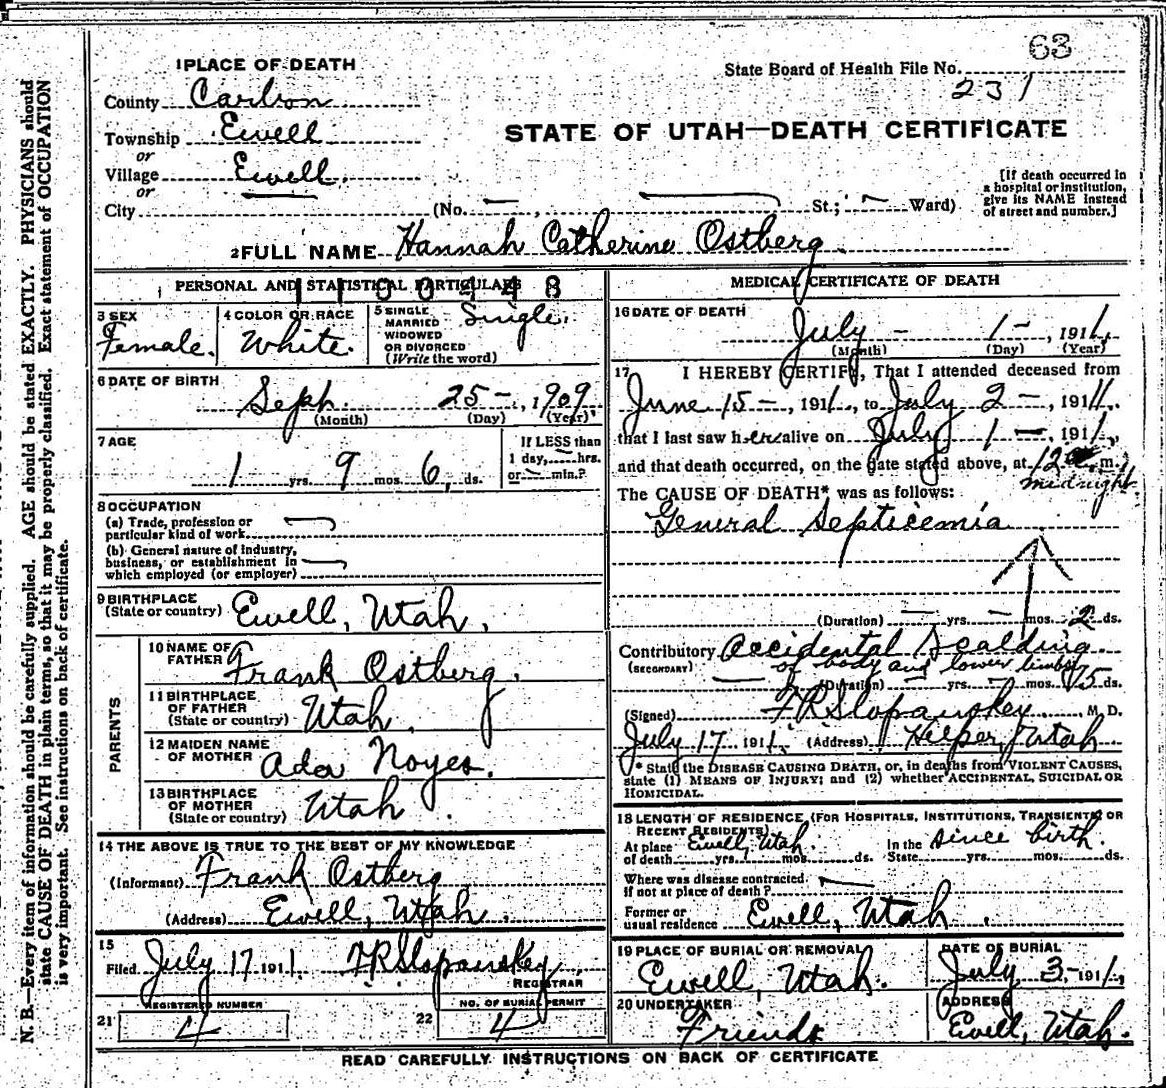 63
State Board of Health File No.
231
1 PLACE OF DEATH
County Carbon
Township Ewell
or
Village Ewell.
or
City (No. — , — St.; — Ward)
STATE OF UTAH—DEATH CERTIFICATE
[If death occurred in
a hospital or institution,
give its NAME instead
of street and number.]
2 FULL NAME Hannah Catherine Ostberg.
PERSONAL AND STATISTICAL PARTICULARS
3 SEX
Female.
4 COLOR OR RACE
White.
5 SINGLE
MARRIED
WIDOWED
OR DIVORCED
(Write the word)
Single.
6 DATE OF BIRTH
Seph. 25 —, 1909
(Month) (Day) (Year)
7 AGE
1 yrs. 9 mos. 6, ds.
If LESS than
1 day, — hrs.
or — min.?
8 OCCUPATION
(a) Trade, profession or
particular kind of work
(b) General nature of industry,
business, or establishment in
which employed (or employer)
9 BIRTHPLACE
(State or country) Ewell, Utah.
PARENTS
10 NAME OF
FATHER Frank Ostberg.
11 BIRTHPLACE
OF FATHER
(State or country) Utah.
12 MAIDEN NAME
OF MOTHER Ada Noyes.
13 BIRTHPLACE
OF MOTHER
(State or country) Utah.
14 THE ABOVE IS TRUE TO THE BEST OF MY KNOWLEDGE
(Informant) Frank Ostberg
(Address) Ewell, Utah.
15
Filed July 17 1911. F R Slopanskey.
REGISTRAR
REGISTERED NUMBER
21 4
NO. OF BURIAL PERMIT
22 4
MEDICAL CERTIFICATE OF DEATH
16 DATE OF DEATH
July — 1 —, 1911,
(Month) (Day) (Year)
17 I HEREBY CERTIFY, That I attended deceased from
June 15 —, 1911, to July 2 —, 1911.
that I last saw her alive on July 1 —, 1911,
and that death occurred, on the date stated above, at 12 m.
midnight.
The CAUSE OF DEATH* was as follows:
General Septicemia
(Duration) — yrs. — mos. 2 ds.
Contributory Accidental Scalding
(SECONDARY) of body and lower limbs
(Duration) — yrs. — mos. 15 ds.
(Signed) F R Slopanskey M. D.
July 17 1911. (Address) Helper, Utah
* State the DISEASE CAUSING DEATH, or, in deaths from VIOLENT CAUSES,
state (1) MEANS OF INJURY; and (2) whether ACCIDENTAL, SUICIDAL OR
HOMICIDAL.
18 LENGTH OF RESIDENCE (FOR HOSPITALS, INSTITUTIONS, TRANSIENTS OR
RECENT RESIDENTS)
At place Ewell, Utah. In the since birth.
of death yrs. mos. ds. State yrs. mos. ds.
Where was disease contracted
if not at place of death? —
Former or
usual residence Ewell, Utah.
19 PLACE OF BURIAL OR REMOVAL
Ewell, Utah.
DATE OF BURIAL
July 3 — 1911,
20 UNDERTAKER
Friends
ADDRESS
Ewell, Utah.
READ CAREFULLY INSTRUCTIONS ON BACK OF CERTIFICATE
N. B.—Every item of information should be carefully supplied. AGE should be stated EXACTLY. PHYSICIANS should
state CAUSE OF DEATH in plain terms, so that it may be properly classified. Exact statement of OCCUPATION
is very important. See instructions on back of certificate.